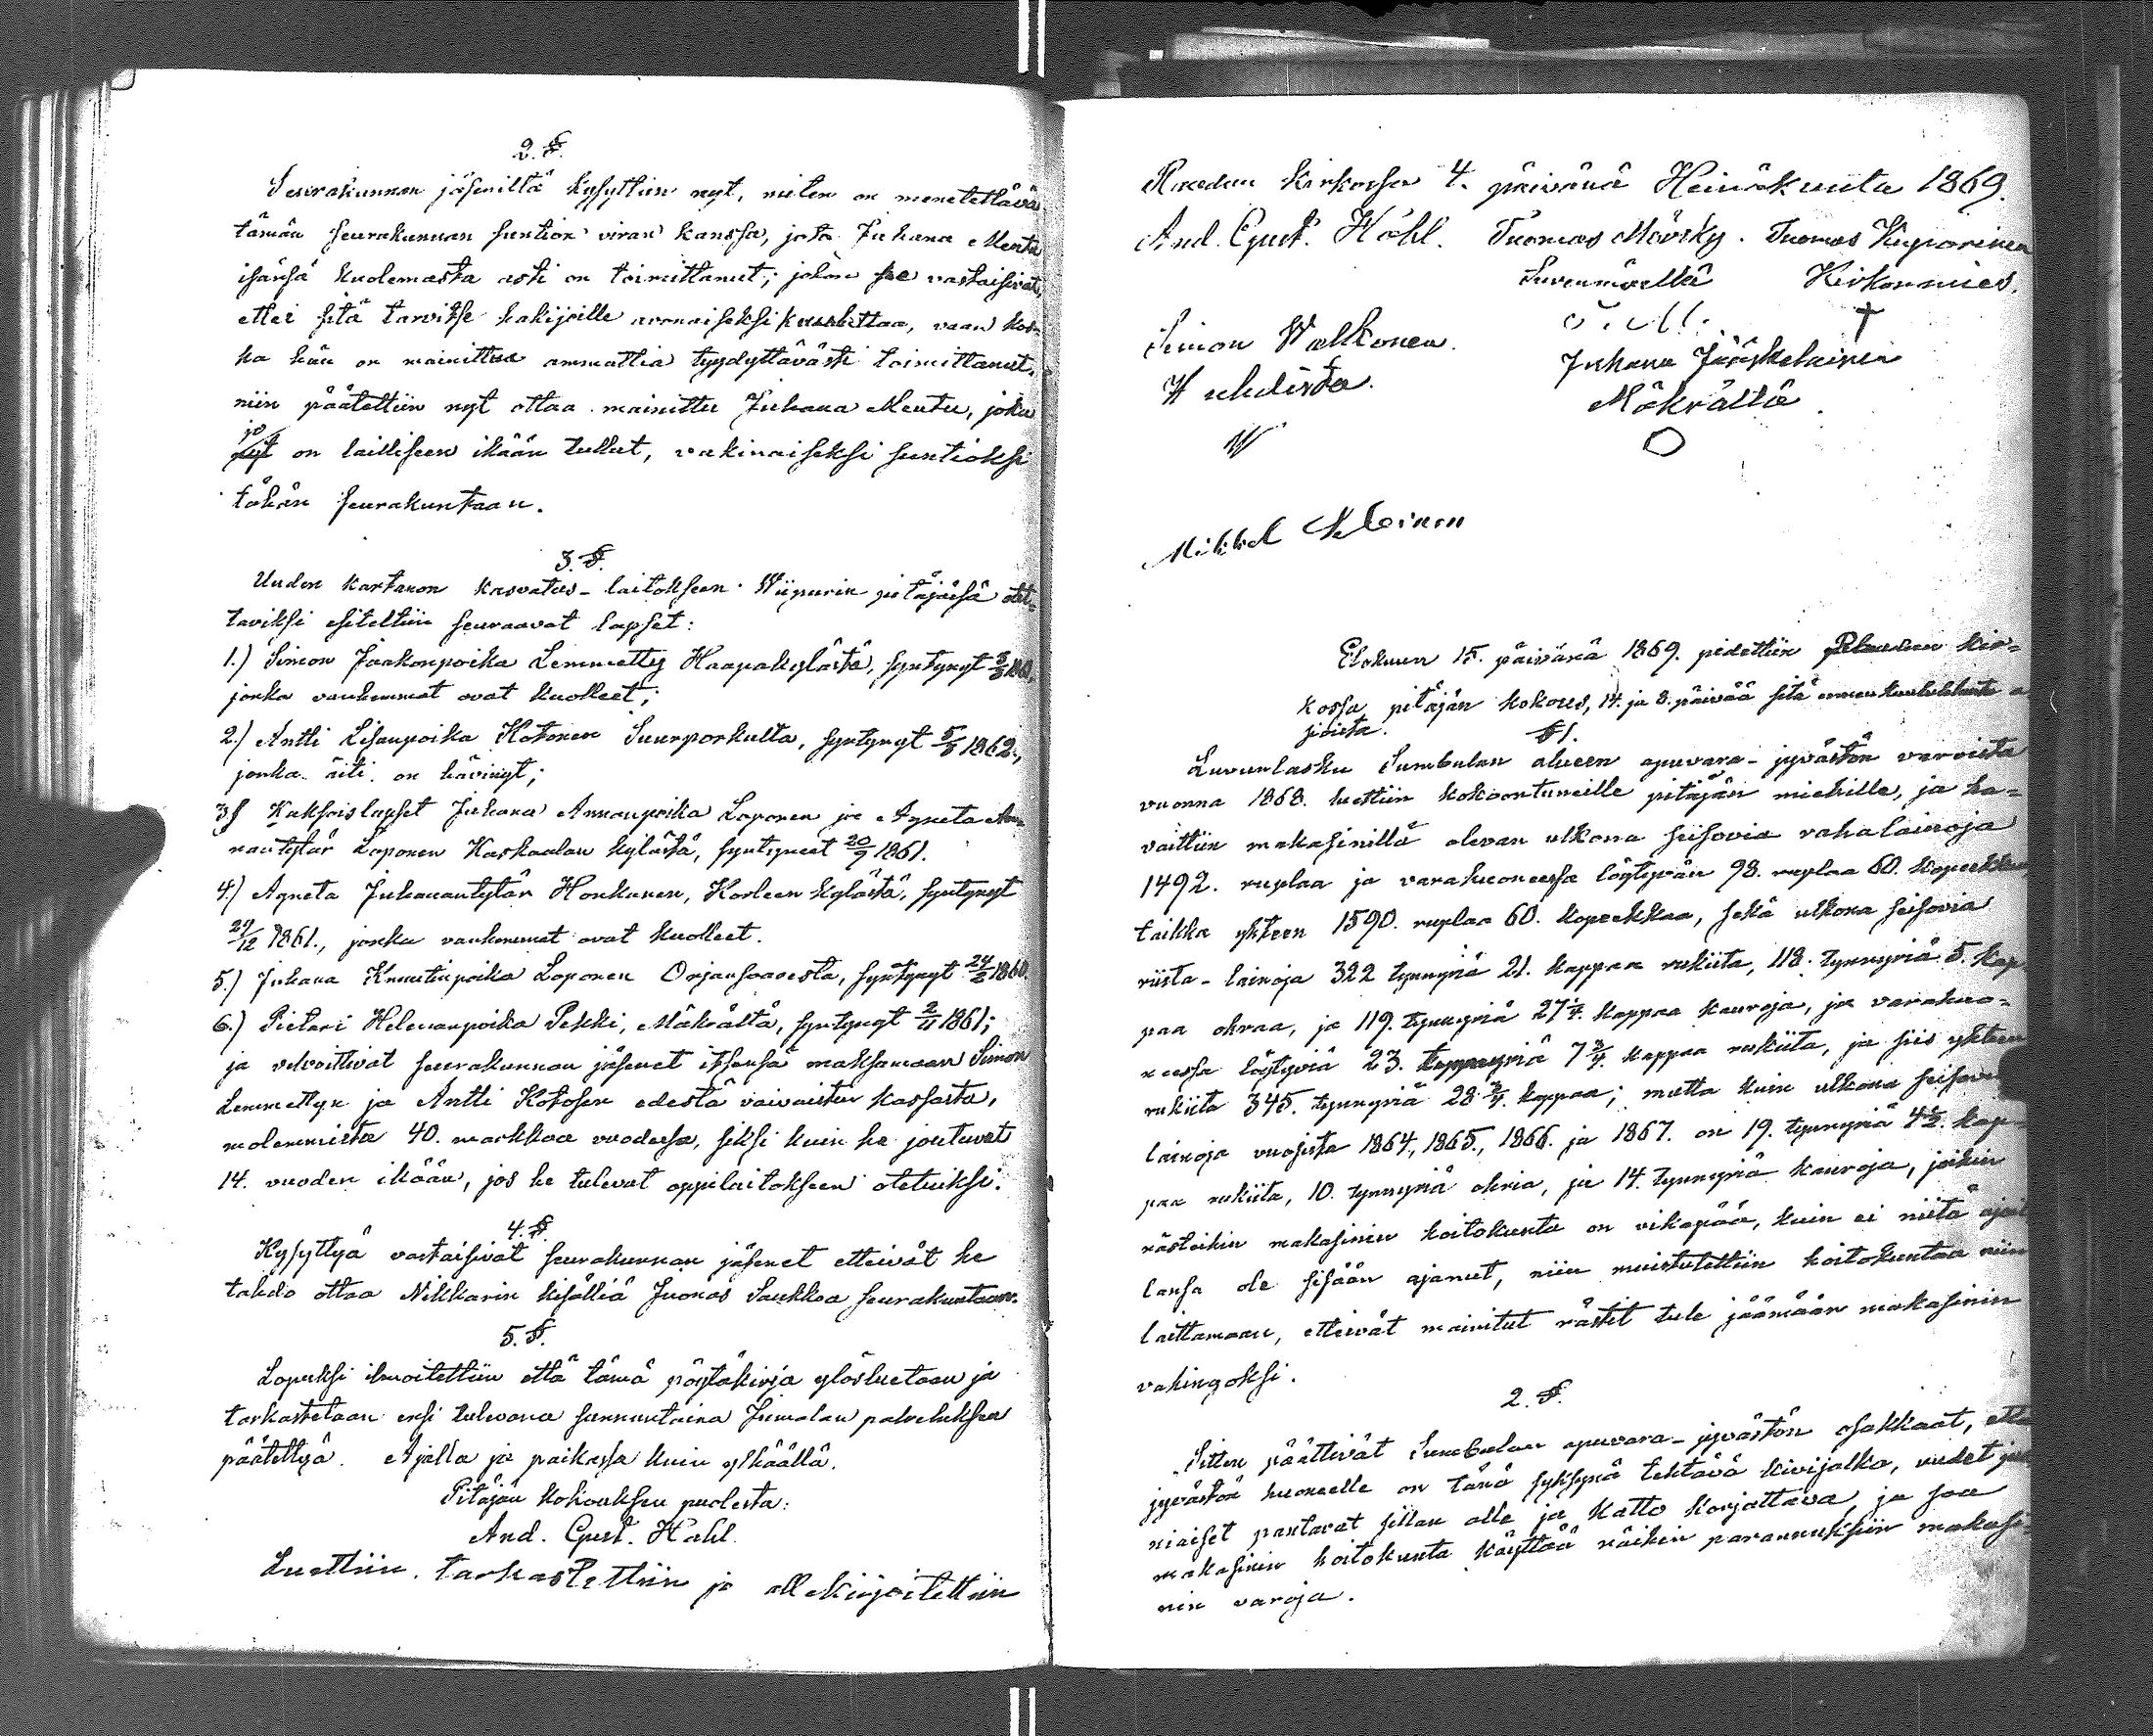 2. §.
Seurakunnan jäseniltä kysyttiin nyt, miten on meneteltävä
tämän seurakunnan suntion viran kanssa, jota Juhana Mentu
isänsä kuolemasta asti on toimittanut; johon he vastaisivat,
ettei sitä tarvitse hakijoille avonaiseksi kuuluttaa, vaan kos-
ka hän on mainittua ammattia tyydyttävästi toimittanut,
niin päätettiin nyt ottaa mainittu Juhana Mentu, joka
jo on lailliseen ikään tullut, vakinaiseksi suntioksi
tähän seurakuntaan.
3. §.
Uuden kartanon kasvatus-laitokseen Wiipurin pitäjäsä otet-
taviksi esiteltiin seuraavat lapset:
1.) Simon Jaakonpoika Lemmetty Haapakylästä, syntynyt
jonka vanhemmat ovat kuolleet;
2.) Antti Liisanpoika Kotonen Suurporkulta, syntynyt 5/5 1862.,
jonka äiti on hävinyt;
3.) Kaksoislapset Juhana Annanpoika Loponen ja Agneta An-
nantytär Loponen Kaskaalan kylästä, syntyneet 20/9 1861.
4.) Agneta Juhanantytär Honkanen, Korleen kylästä, syntynyt
27/12 1861., jonka vanhemmat ovat kuolleet.
5.) Juhana Knuutinpoika Loponen Orjansaaresta, syntynyt 24/2 1860.
6.) Pietari Helenanpoika Pekki, Mäkrältä, syntynyt 2/11 1861;
ja velvoittivat seurakunnan jäsenet itsensä maksamaan Simon
Lemmettyn ja Antti Kotosen edestä vaivaisten kassasta,
molemmista 40. markkaa vuodessa, siksi kuin he joutuvat
14. vuoden ikään, jos he tulevat oppilaitokseen otetuiksi.
4. §.
Kysyttyä vastaisivat seurakunnan jäsenet etteivät he
tahdo ottaa Nikkarin kisälliä Juonas Saukkoa seurakuntaan.
5. §.
Lopuksi ilmoitettiin että tämä pöytäkirja ylösluetaan ja
tarkastetaan ensi tulevana sunnuntaina Jumalan palveluksen
päätettyä. Ajalla ja paikassa kuin ylhäällä.
Pitäjän kokouksen puolesta:
And. Gust. Hahl.
Luettiin, tarkastettiin ja allekirjoitettiin
kirkossa 4. päivänä Heinäkuuta 1869.
And. Gust. Hahl. Tuomas Mörsky. Tuomas Kuparinen
Suvenmäeltä Kirkonmies.
Simon Valkonen. T. M. +
Juhana Jääskelainen
Mäkrältä
Mikkel
Elokuun 15. päivänä 1869. pidettiin kir-
kossa pitäjän kokous, 14. ja 8. päivää sitä ennen kuulutetuista a
sioista.
§ 1.
Luvunlasku Sumbulan alueen apuvara-jyvästön varoista
vuonna 1868. luettiin kokoontuneille pitäjän miehille, ja ha-
vaittiin makasinilla olevan ulkona seisovia rahalainoja
1492. ruplaa ja varahuoneessa löytyvän 98. ruplaa 60. kopeekkaa
taikka yhteen 1590. ruplaa 60. kopeekkaa, sekä ulkona seisovia
riista-lainoja 322 tynnyriä 21. kappaa rukiita, 118. tynnyriä 5. kap-
paa ohraa, ja 119. tynnyriä 27 1/4. kappaa kauroja, ja varahuo-
neessa löytyviä 23. tynnyriä 7 3/4. kappaa rukiita, ja siis yhteen
rukiita 345. tynnyriä 28 3/4. kappaa; mutta kuin ulkona seisovia
lainoja vuosista 1864., 1865., 1866. ja 1867. on 19. tynnyriä 4 1/2. kap-
paa rukiita, 10. tynnyriä ohria, ja 14. tynnyriä kauroja, joihin
rästeihin makasinin hoitokunta on vikapää, kuin ei niitä ajal
lansa ole sisään ajanut, niin muistutettiin hoitokuntaa niin
laittamaan, etteivät mainitut rästit tule jäämään makasinin
vahingoksi.
2. §.
Sitten päättivät Sumbulan apuvara-jyvästön osakkaat, että
jyvästön huoneelle on tänä syksynä tehtävä kivijalka, uudet
niaiset pantavat sillan alle ja katto korjattava, ja saa
makasinin hoitokunta käyttää näihin parannuksiin makasi-
nin varoja.